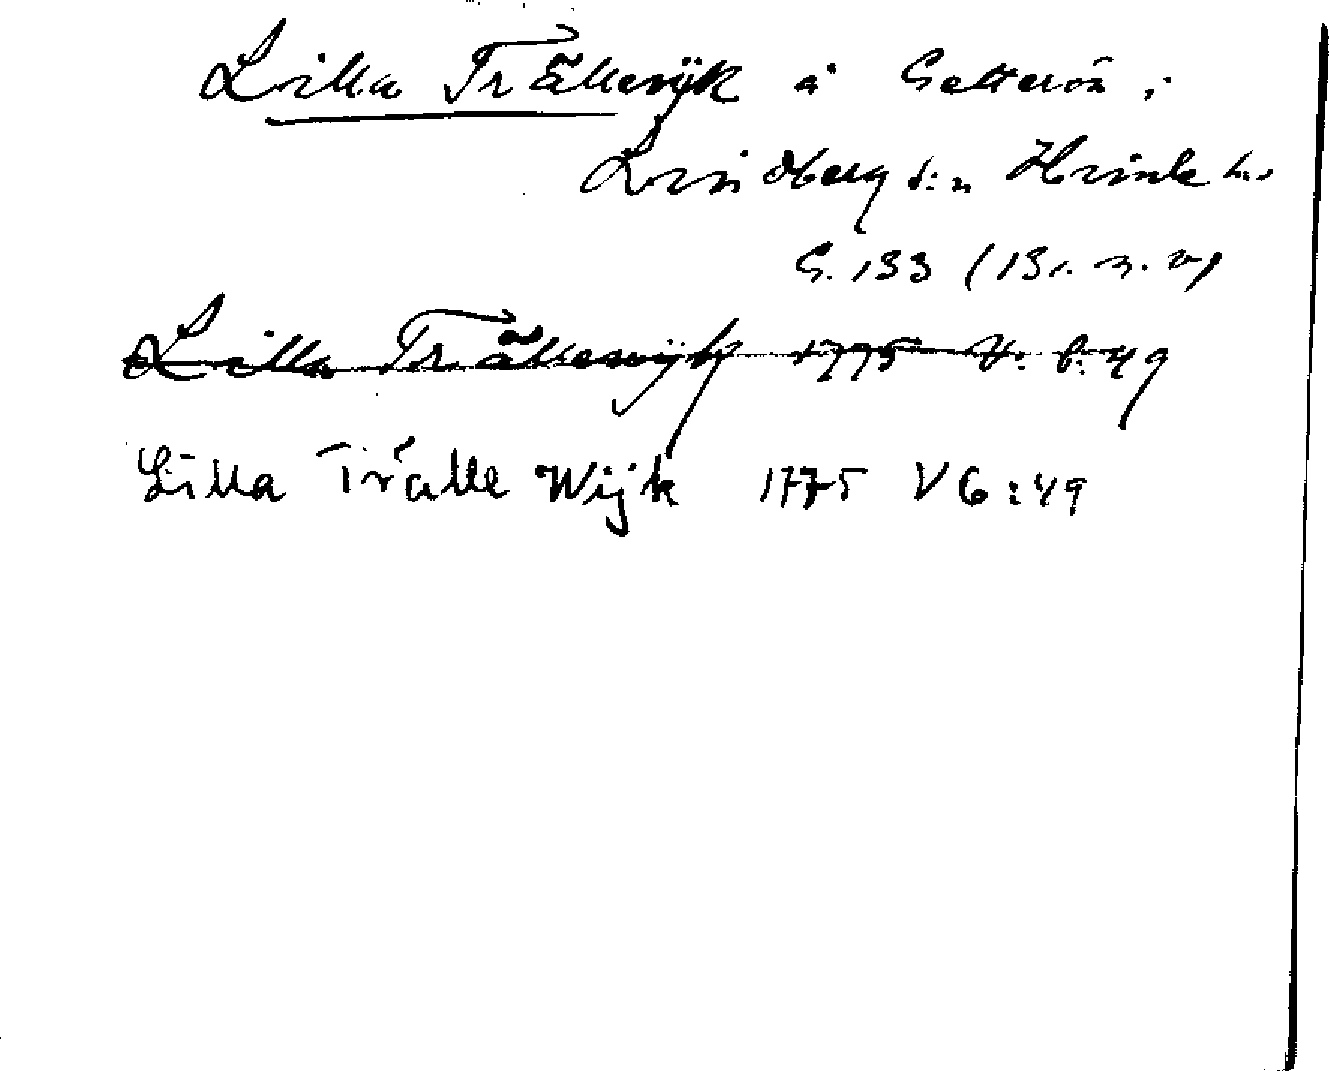 Lilla Trällevijk å Getterön i
Lindberg s:n Himle h.
G. 133 (B1. 3. 
Lilla Trällevijk 1775 V. 6:49
Lilla Trälle Wijk 1775 V 6:49